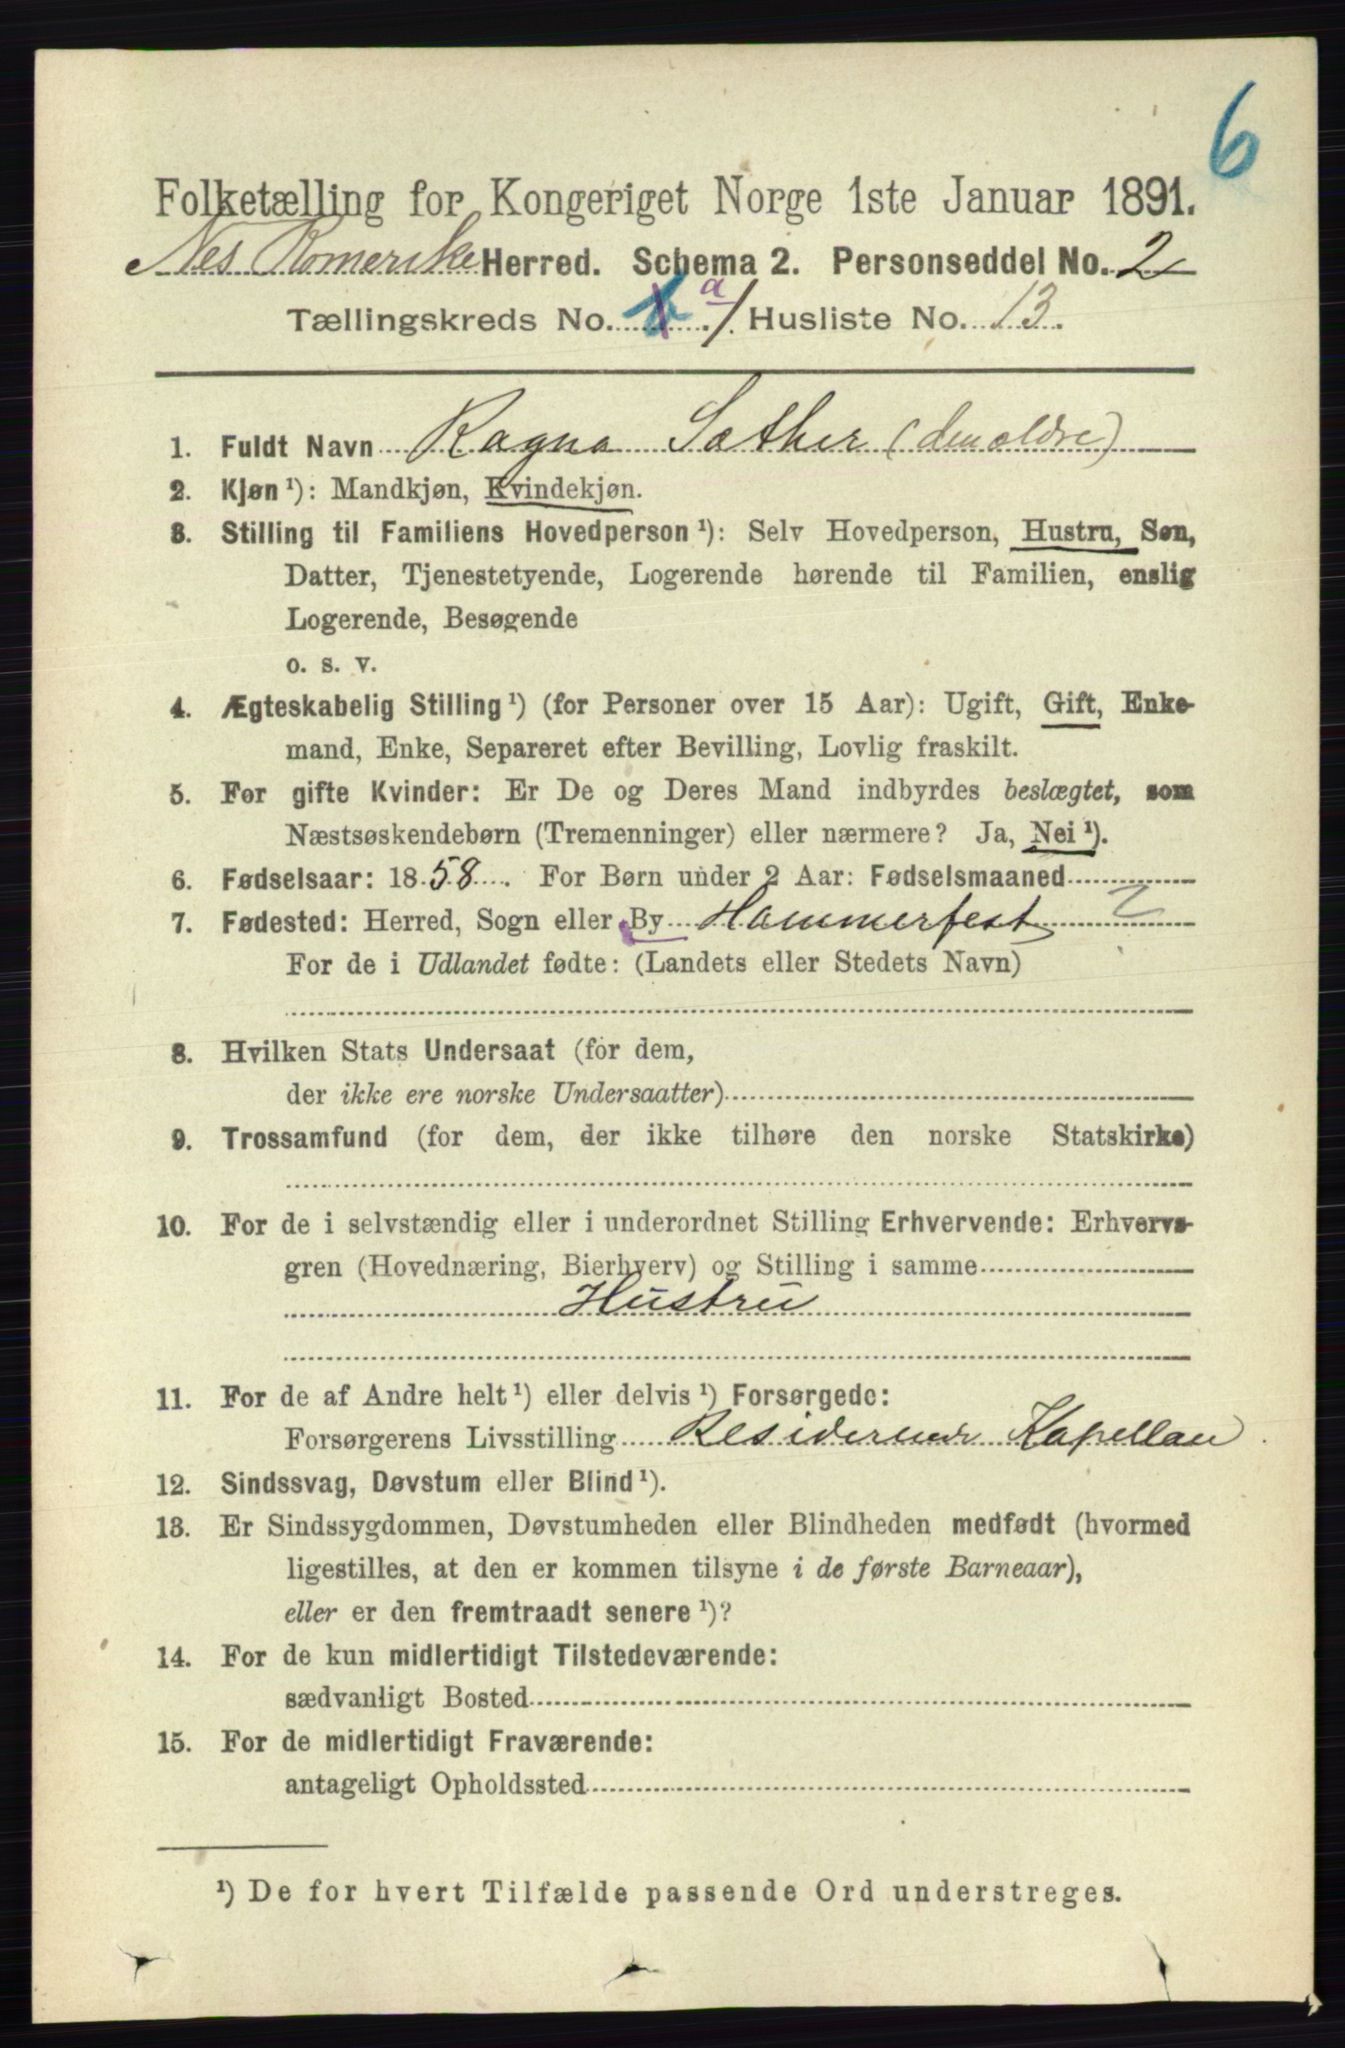 6
Folketælling for Kongeriget Norge 1ste Januar 1891.
Nes Romerike Herred. Schema 2. Personseddel No. 2
Tællingskreds No. a 1 Husliste No. 13.
1. Fuldt Navn Ragna Sæther (den ældre)
2. Kjøn ¹): Mandkjøn, Kvindekjøn.
3. Stilling til Familiens Hovedperson ¹): Selv Hovedperson, Hustru, Søn,
Datter, Tjenestetyende, Logerende hørende til Familien, enslig
Logerende, Besøgende
o. s. v.
4. Ægteskabelig Stilling ¹) (for Personer over 15 Aar): Ugift, Gift, Enke-
mand, Enke, Separeret efter Bevilling, Lovlig fraskilt.
5. For gifte Kvinder: Er De og Deres Mand indbyrdes beslægtet, som
Næstsøskendebørn (Tremenninger) eller nærmere? Ja, Nei ¹).
6. Fødselsaar: 1858. For Børn under 2 Aar: Fødselsmaaned
7. Fødested: Herred, Sogn eller By Hammerfest
For de i Udlandet fødte: (Landets eller Stedets Navn)
8. Hvilken Stats Undersaat (for dem,
der ikke ere norske Undersaatter)
9. Trossamfund (for dem, der ikke tilhøre den norske Statskirke)
10. For de i selvstændig eller i underordnet Stilling Erhvervende: Erhvervs-
gren (Hovednæring, Bierhverv) og Stilling i samme
Hustru
11. For de af Andre helt ¹) eller delvis ¹) Forsørgede:
Forsørgerens Livsstilling Residerende Kapellan
12. Sindssvag, Døvstum eller Blind ¹).
13. Er Sindssygdommen, Døvstumheden eller Blindheden medfødt (hvormed
ligestilles, at den er kommen tilsyne i de første Barneaar),
eller er den fremtraadt senere ¹)?
14. For de kun midlertidigt Tilstedeværende:
sædvanligt Bosted
15. For de midlertidigt Fraværende:
antageligt Opholdssted
¹) De for hvert Tilfælde passende Ord understreges.